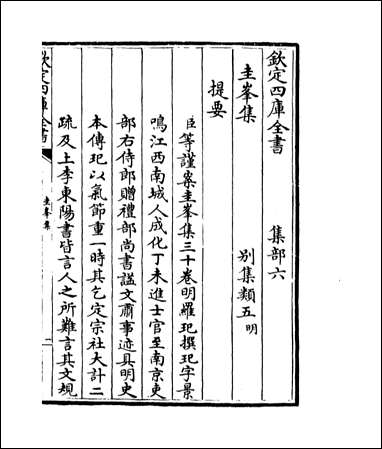 欽定四庫全書　集部六
圭峯集　別集類五明
提要
臣等謹案圭峯集三十卷明羅玘撰玘字景
鳴江西南城人成化丁未進士官至南京吏
部右侍郎贈禮部尚書諡文肅事迹具明史
本傳玘以氣節重一時其乞定宗社大計二
疏及上李東陽書皆言人之所難言其文規
欽定四庫全書
圭峯集